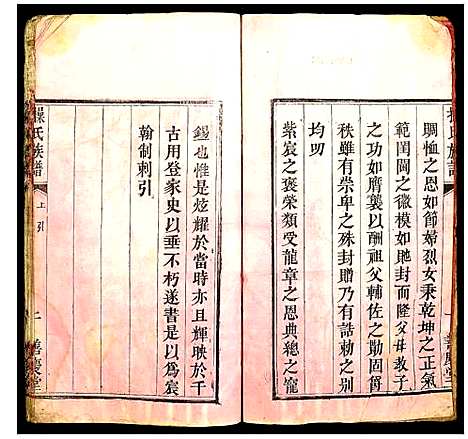 賙恤之恩如節婦烈女秉乾坤之正氣
範閨閫之徽模如貤封而隆父母教子
之功如膺襲以酬祖父輔佐之勛固爵
秩雖有崇卑之殊封贈乃有誥勅之别
均叨
紫宸之褒榮類受龍章之恩典總之寵
錫也惟是炫耀於當時亦且輝映於千
古用登家史以垂不朽遂書是以為宸
翰制刺引
氏族譜
上 引
二 善慶堂